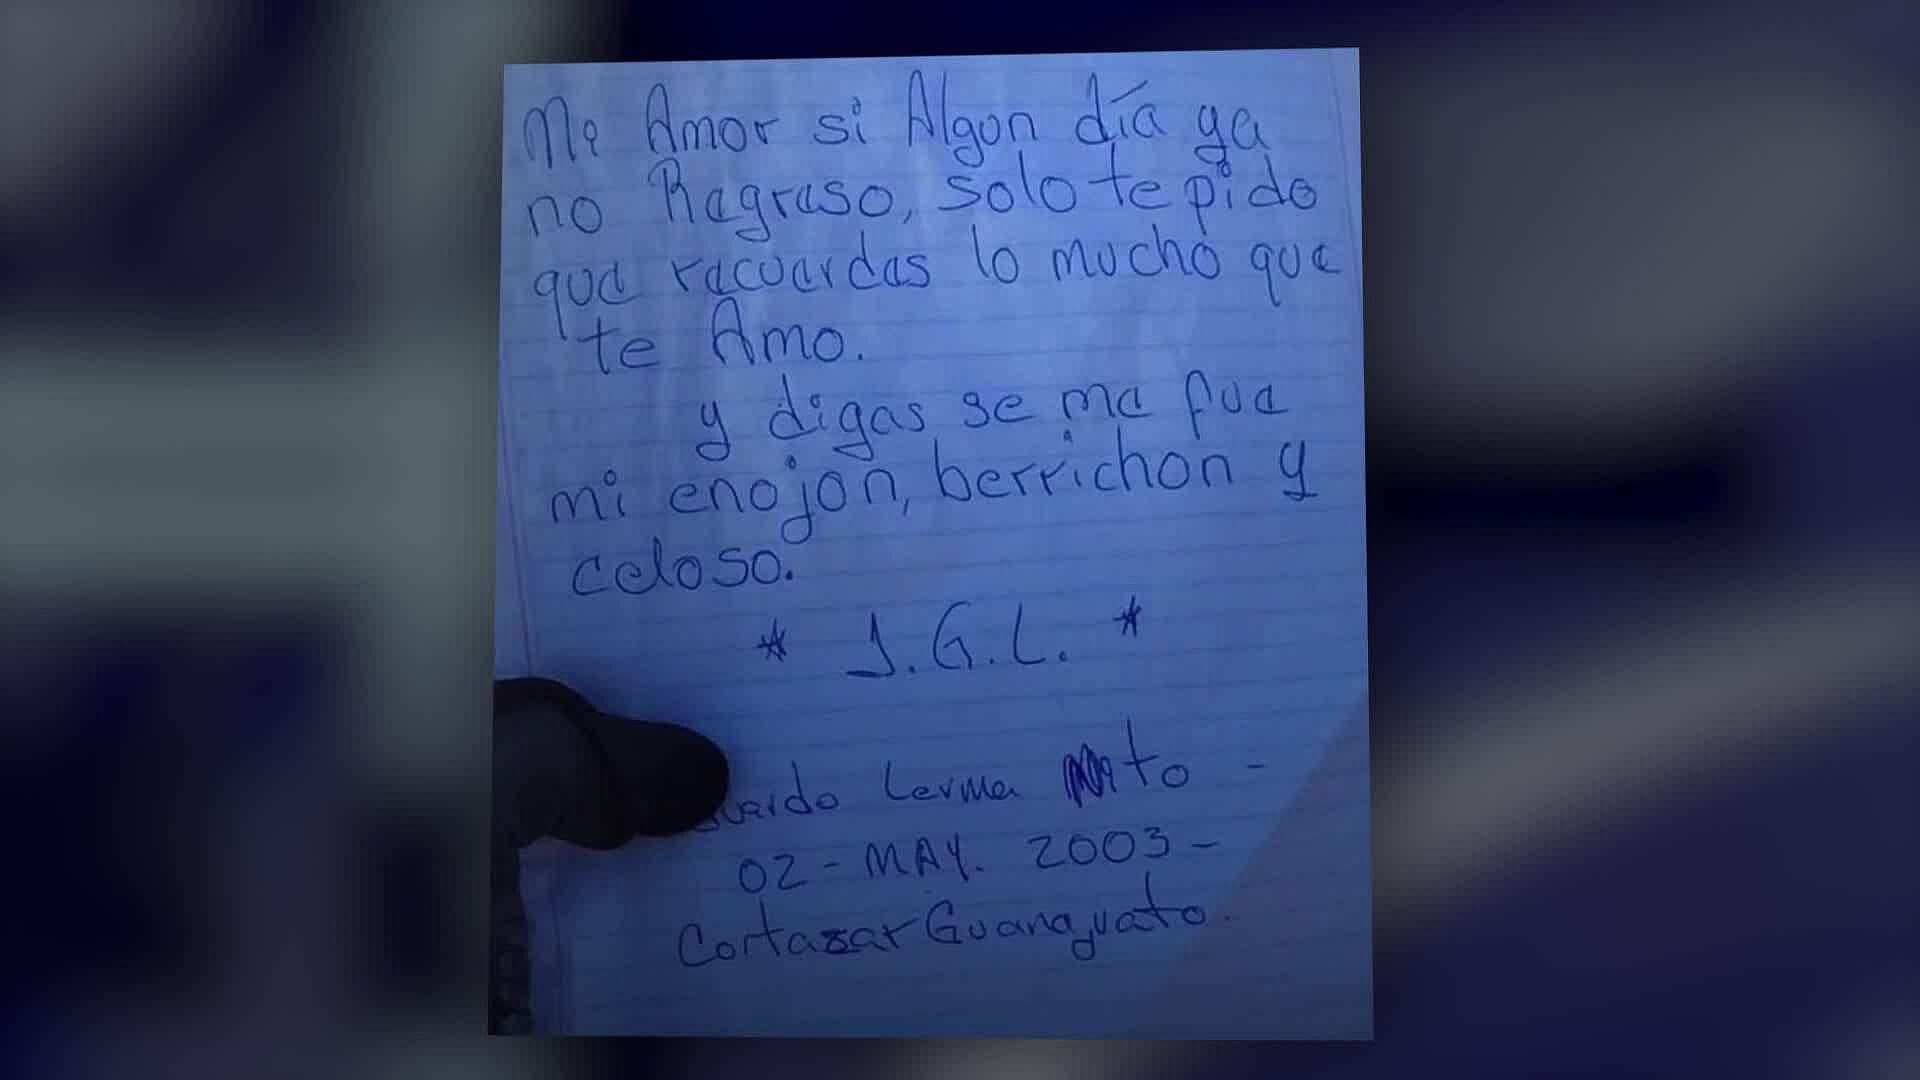 Mi Amor si Algon día ya
no Regreso, solo te pido
que recuerdes lo mucho que
te Amo.
y digas se me fue
mi enojon, berrichon y
celoso.
* J.G.L. *
Lerma
02 - MAY. 2003 -
Cortazar Guanajuato.